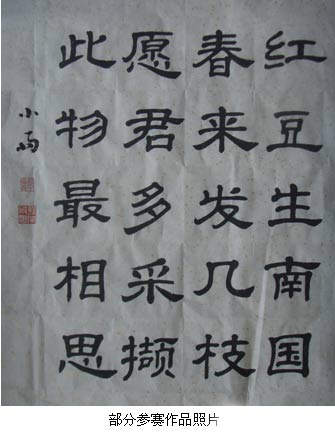 红豆生南国
春来发几枝
愿君多采撷
此物最相思
部分参赛作品照片